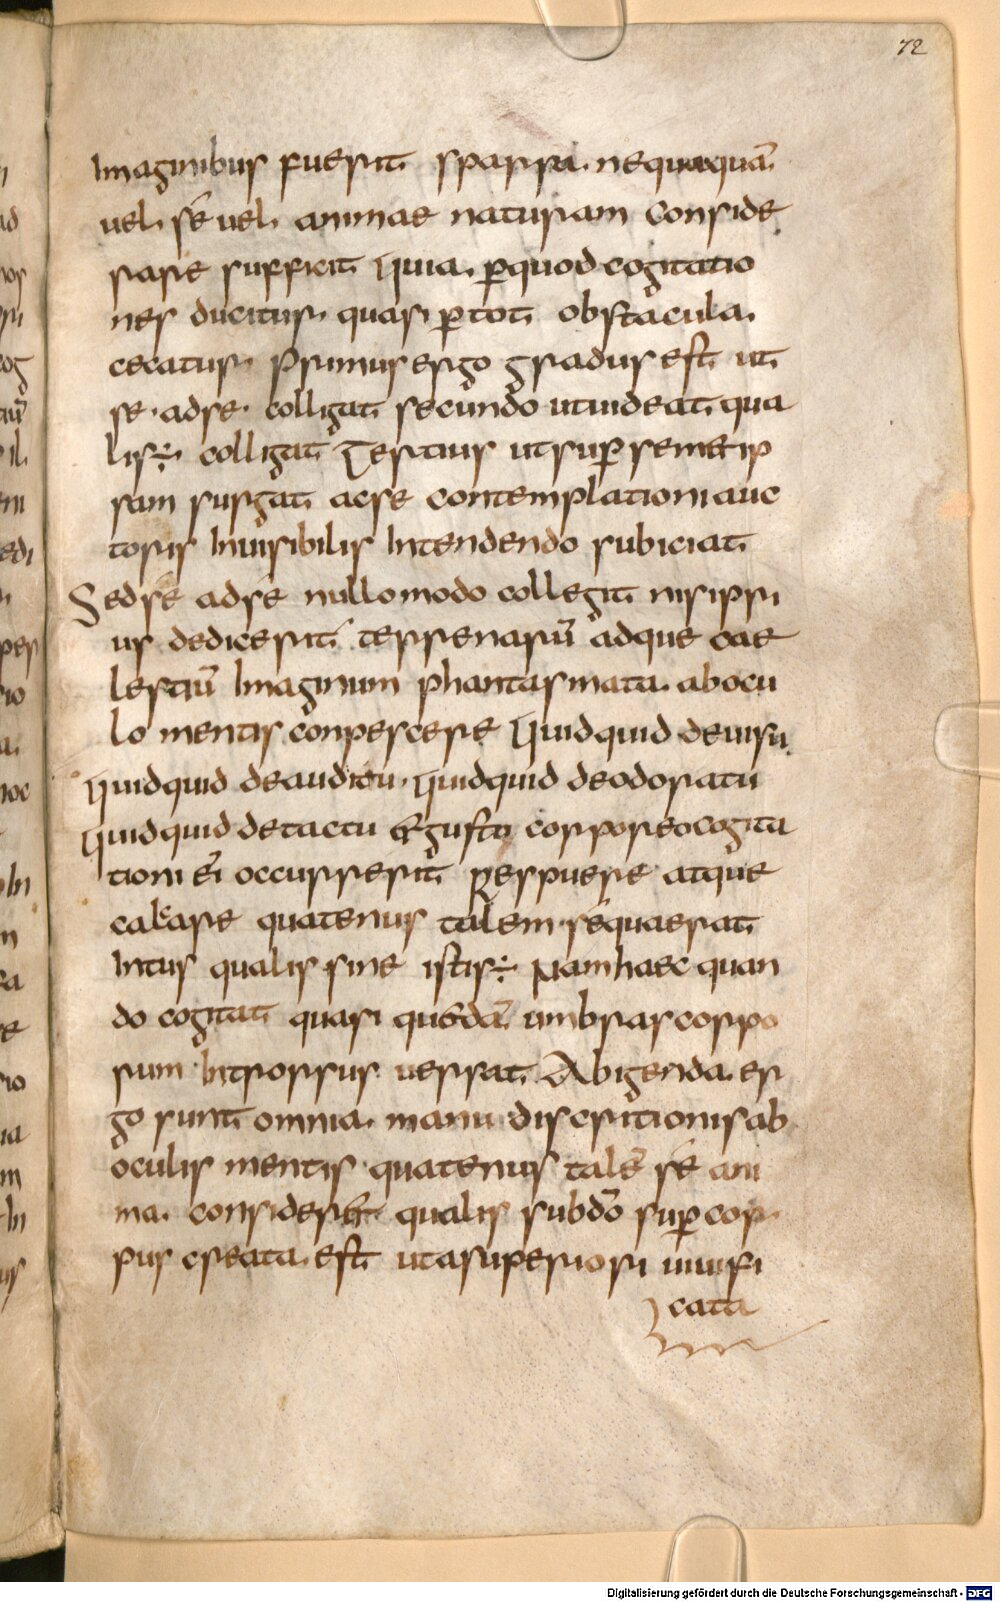 72
Imaginibus fuerit sparsa. nequaquā
uel. sé uel. animae naturam conside
rare sufficit Quia. ꝑquod cogitatio
nes ducitur. quasi ꝑtot. obstacula.
cecatur. Primus ergo gradus est ut
se. adse. colligat secundo utuideat. qua
lis ÷ colligat Tertius utsuꝑsemetip
sam surgat acse contemplationi auc
toris Inuisibilis Intendendo subiciat
Sed sé adsé nullomodo collegit nisiprı
us dedicerit terrenarū adque cae
lestiū Imaginum phantasmata. abocu
lo mentis conpescere Quidquid deuisu.
Quidquid deauditu. Quidquid deodoratu
Quidquid detactu & gustu corporeocogita
tioni eī occurrerit Respuere atque
calcare quatenus talem séquaerat
Intus qualis sine istis ÷ Nam haec quan
do cogitat quasi quasdā umbras corpo
rum Introrsus uersat. Abigenda. er
go sunt omnia. manu discretionis ab
oculis mentis quatenus talē sé ani
ma. consideret qualis subdō suꝑ cor
pus creata. est utasuperiori uiuifi
cata
Digitalisierung gefördert durch die Deutsche Forschungsgemeinschaft - DFG